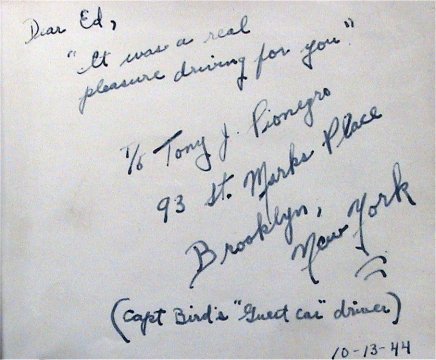 Dear Ed,
"It was a real
pleasure driving for you"
T/5 Tony J. Pionegro
93 St. Marks Place
Brooklyn,
New York
(Capt Bird's "Guest Car" driver)
10-13-44